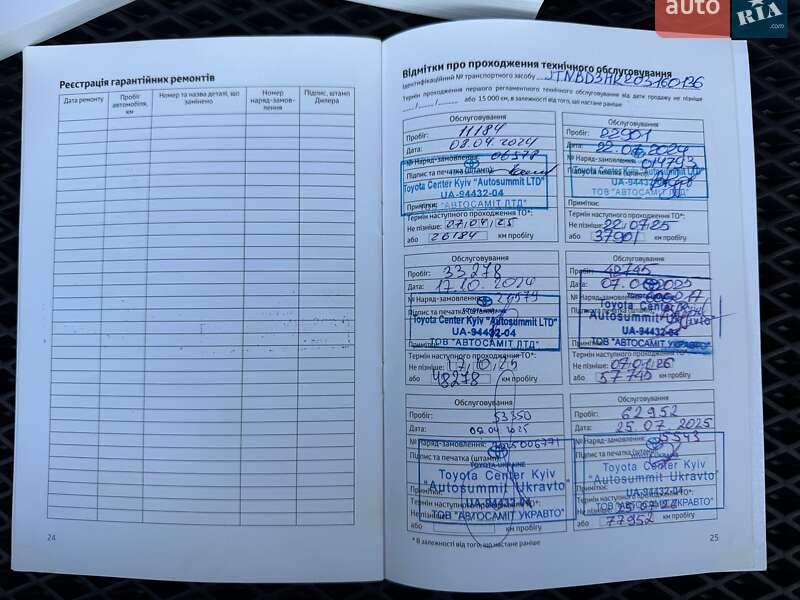 auto
RIA
.com
Реєстрація гарантійних ремонтів
Дата ремонту
Пробіг автомобіля, км
Номер та назва деталі, що замінено
Номер наряд-замов-лення
Підпис, штамп Дилера
24
Відмітки про проходження технічного обслуговування
Ідентифікаційний № транспортного засобу JTNBD3HK203160136
Термін проходження першого регламентного технічного обслуговування від дати продажу не пізніше
або 15 000 км, в залежності від того, що настане раніше
Обслуговування
Пробіг: 11184
Дата: 08.04.2024
№ Наряд-замовлення: 06578
Підпис та печатка (штамп):
Toyota Center Kyiv "Autosummit LTD"
UA-94432-04
ТОВ "АВТОСАМІТ ЛТД"
Примітки:
Термін наступного проходження ТО*:
Не пізніше: 07.04.25
або 26184 км пробігу
Обслуговування
Пробіг: 22901
Дата: 22.07.2024
№ Наряд-замовлення: 014793
Toyota Center Kyiv "Autosummit LTD"
UA-94432-04
ТОВ "АВТОСАМІТ ЛТД"
Примітки:
Термін наступного проходження ТО*:
Не пізніше: 22.07.25
або 37901 км пробігу
Обслуговування
Пробіг: 33278
Дата: 17.10.2024
№ Наряд-замовлення:
Підпис та печатка (штамп):
Toyota Center Kyiv "Autosummit LTD"
UA-94432-04
ТОВ "АВТОСАМІТ ЛТД"
Примітки:
Термін наступного проходження ТО*:
Не пізніше: 17.10.25
або 48278 км пробігу
Обслуговування
Пробіг: 42745
Дата: 07.01.2025
№ Наряд-замовлення:
Toyota Center Kyiv
"Autosummit Ukravto"
UA-94432-04
ТОВ "АВТОСАМІТ УКРАВТО"
Термін наступного проходження ТО*:
Не пізніше: 07.01.26
або 57745 км пробігу
Обслуговування
Пробіг: 53350
Дата: 09.04.2025
№ Наряд-замовлення: 2025006771
Підпис та печатка (штамп):
TOYOTA-UKRAINE
Toyota Center Kyiv
"Autosummit Ukravto"
UA-94432-04
ТОВ "АВТОСАМІТ УКРАВТО"
Примітки:
Термін наступного проходження ТО*:
Не пізніше:
або км пробігу
Обслуговування
Пробіг: 62952
Дата: 25.07.2025
№ Наряд-замовлення:
Підпис та печатка (штамп):
Toyota Center Kyiv
"Autosummit Ukravto"
UA-94432-04
ТОВ "АВТОСАМІТ УКРАВТО"
Примітки:
Не пізніше:
або 77952 км пробігу
* В залежності від того, що настане раніше
25